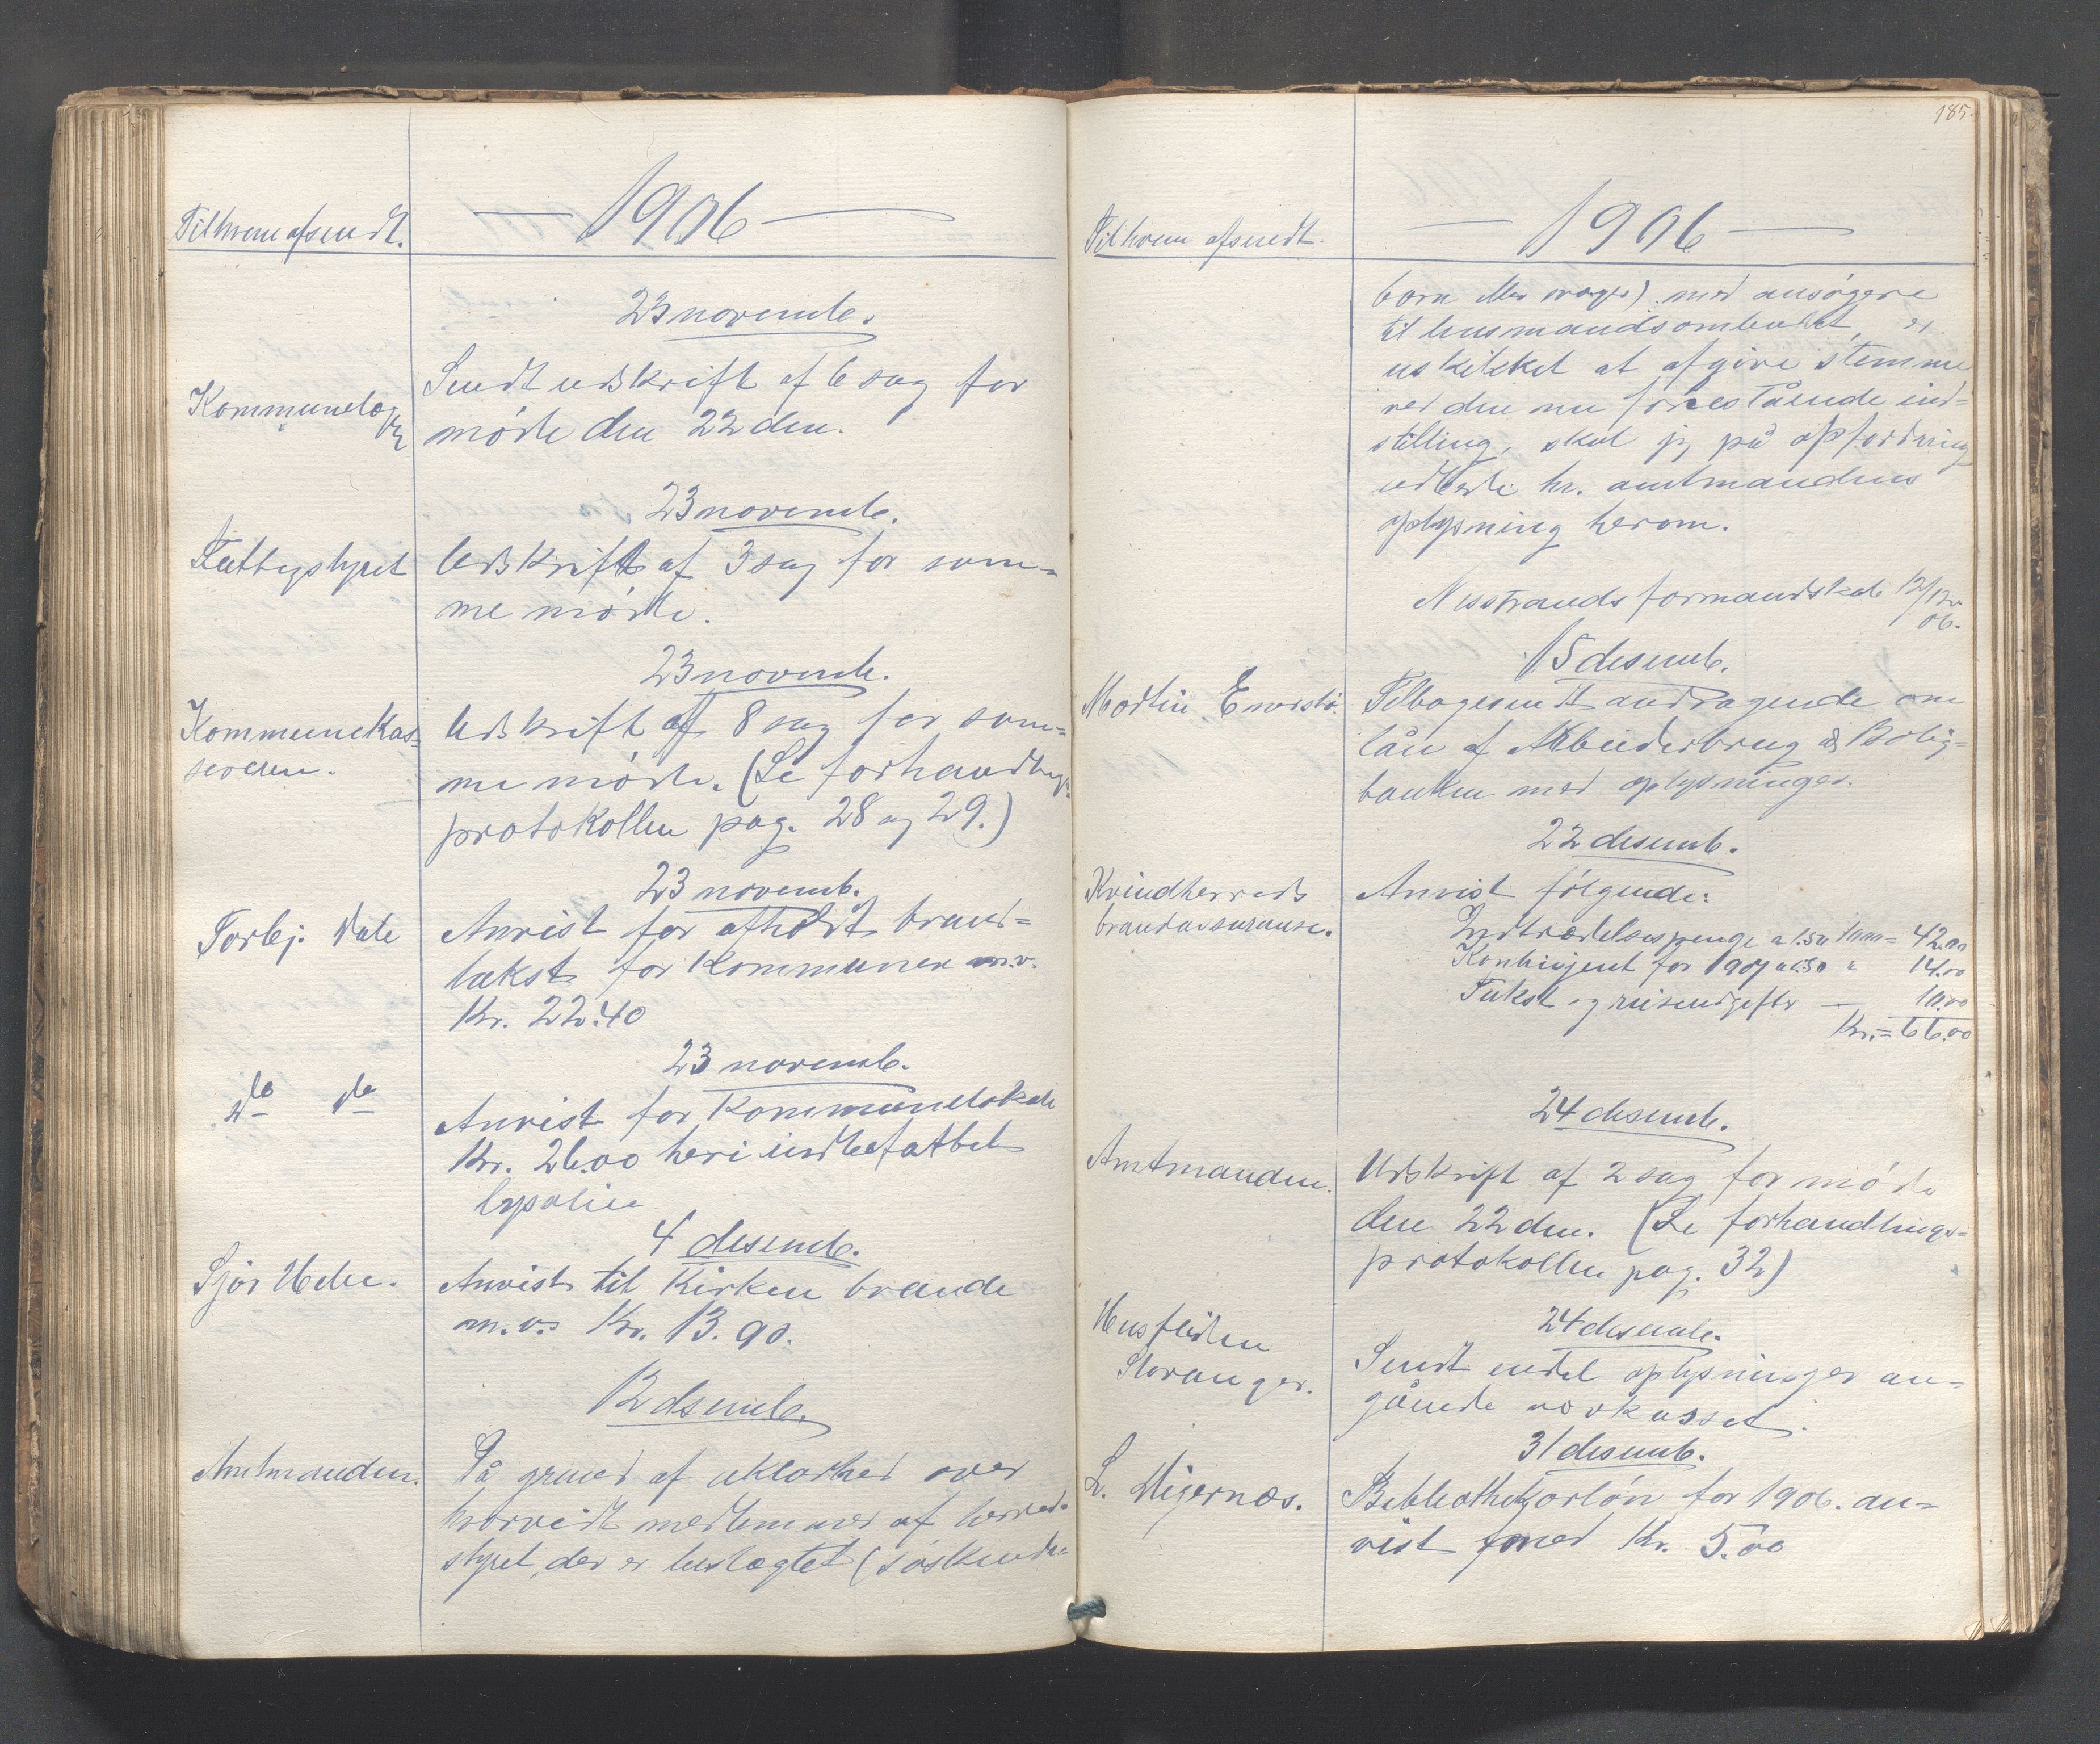 Til hvem afsendt.
1906
23 novemb.
Kommunelægen
Sendt udskrift af 6 sag for
møde den 22 den.
23 novemb.
Fattigstyret
Udskrift af 3 sag for sam=
me møde.
23 novemb.
Kommunekas=
sereren.
Udskrift af 8 sag for sam=
me møde. (Se forhandlings
protokollen pag. 28 og 29.)
23 novemb.
Torbj. Dale
Anvist for afholdt brand=
takst for Kommunen m.v.
Kr. 22.40
23 novemb.
do do
Anvist for Kommunelokale
Kr. 26.00 heri indbefattet
lysolien
4 desemb.
Sjør
Anvist til Kirken brænde
m.v. Kr. 13.90.
12 desemb.
Amtmanden.
På grund af uklarhed over
hvorvidt medlemmer af herred=
styret, der er beslægtet (søskende=
185.
Til hvem afsendt.
1906
børn) med ansøgere
til lensmandsombudet, er
uskikket at afgive stemme
ved den nu forestående ind=
stilling, skal jeg på opfordring
udbede hr. amtmandens
oplysning herom.
Nesstrands formandskab 12/12
06.
15 desemb.
Tilbagesendt andragende om
lån af Arbeiderbrug & Bolig=
banken med oplysninger.
22 desemb.
Kvindherreds
brandassuranse.
Anvist følgende:
Indtrædelsespenge a 1.50 = 42.00
Kontingent for 1907 a 0.50 " 14.00
Takst og reiseudgifter — 10.00
Kr. = 66.00
24 desemb.
Amtmanden.
Udskrift af 2 sag for møde
den 22 den. (Se forhandlings=
protokollen pag. 32)
24 desemb.
Husfliden
Stavanger.
Sendt endel oplysninger an=
gående
31 desemb.
L. Migernæs.
Bibliothekarløn for 1906. an=
vist med Kr. 5.00